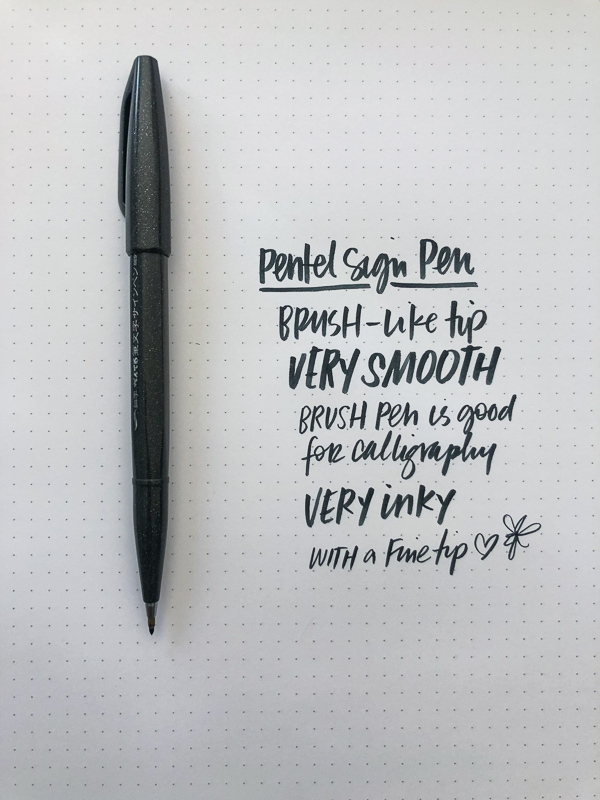 Pentel Sign Pen
BRUSH-like tip
VERY SMOOTH
BRUSH Pen is good
for calligraphy
VERY inky
WITH a Fine tip